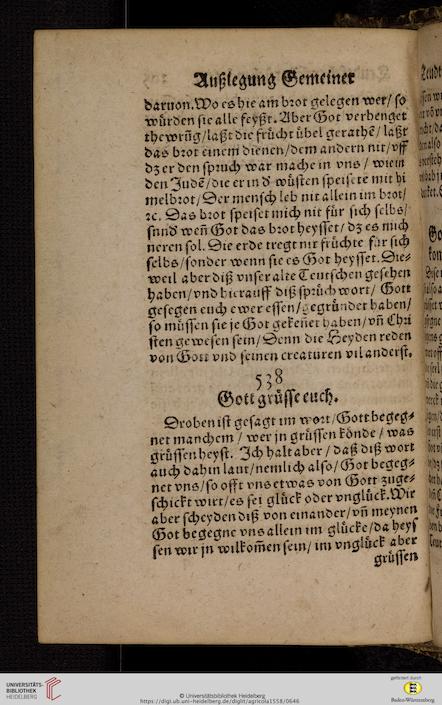 Außlegung Gemeiner
daruon. Wo es hie am brot gelegen wer/ so
würden sie alle feyßt. Aber Got verhenget
thewrũg/ laßt die frücht übel gerathẽ/ laßt
das brot einem dienen/ dem andern nit/ vff
dz er den spruch war mache in vns / wie in
den Judẽ/ die er in d' wüsten speisete mit hi
melbrot/ Der mensch leb nit allein im brot/
ꝛc. Das brot speiset mich nit für sich selbs/
sund weñ Got das brot heysset/ dz es mich
neren sol. Die erde tregt nit früchte für sich
selbs/ sonder wenn sie es Got heysset. Die⸗
weil aber diß vnser alte Teutschen gesehen
haben/ vnd hierauff diß sprüchwort/ Gott
gesegen euch ewer essen/ gegründet haben/
so müssen sie je Got gekeñet haben/ vñ Chri
sten gewesen sein/ Denn die Heyden reden
von Gott vnd seinen creaturen vil anderst.
538
Gott grüsse euch.
Droben ist gesagt im wort/ Gott begeg⸗
net manchem / wer jn grüssen könde / was
grüssen heyst. Ich halt aber / daß diß wort
auch dahin laut/ nemlich also/ Got begeg⸗
net vns/ so offt vns etwas von Gott zuge⸗
schickt wirt/ es sei glück oder vnglück. Wir
aber scheyden diß von einander/ vñ meynen
Got begegne vns allein im glücke/ da heys
sen wir jn wilkom̃en sein/ im vnglück aber
grüssen
UNIVERSITÄTS-
BIBLIOTHEK
HEIDELBERG
© Universitätsbibliothek Heidelberg
https://digi.ub.uni-heidelberg.de/diglit/agricola1558/0646
gefördert durch
Baden-Württemberg